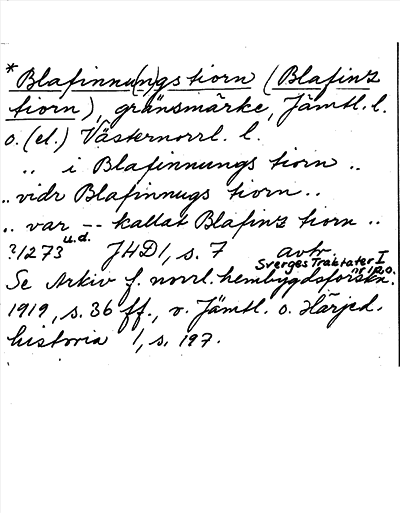 * Blafinnu(n)gs tiorn (Blafinz
tiorn), gränsmärke, Jämtl. l.
o. (el.) Västernorrl. l.
„ i Blafinnungs tiorn „
„ vidr Blafinnugs tiorn „
„ var -- kallat Blafinz tiorn „
?1273 u.d. JHD 1, s. 7 avtr
Sverges Traktater I
Se Arkiv f. norrl. hembygdsforskn.
1919, s. 36 ff., o. Jämtl. o. Härjed.
historia 1, s. 197.